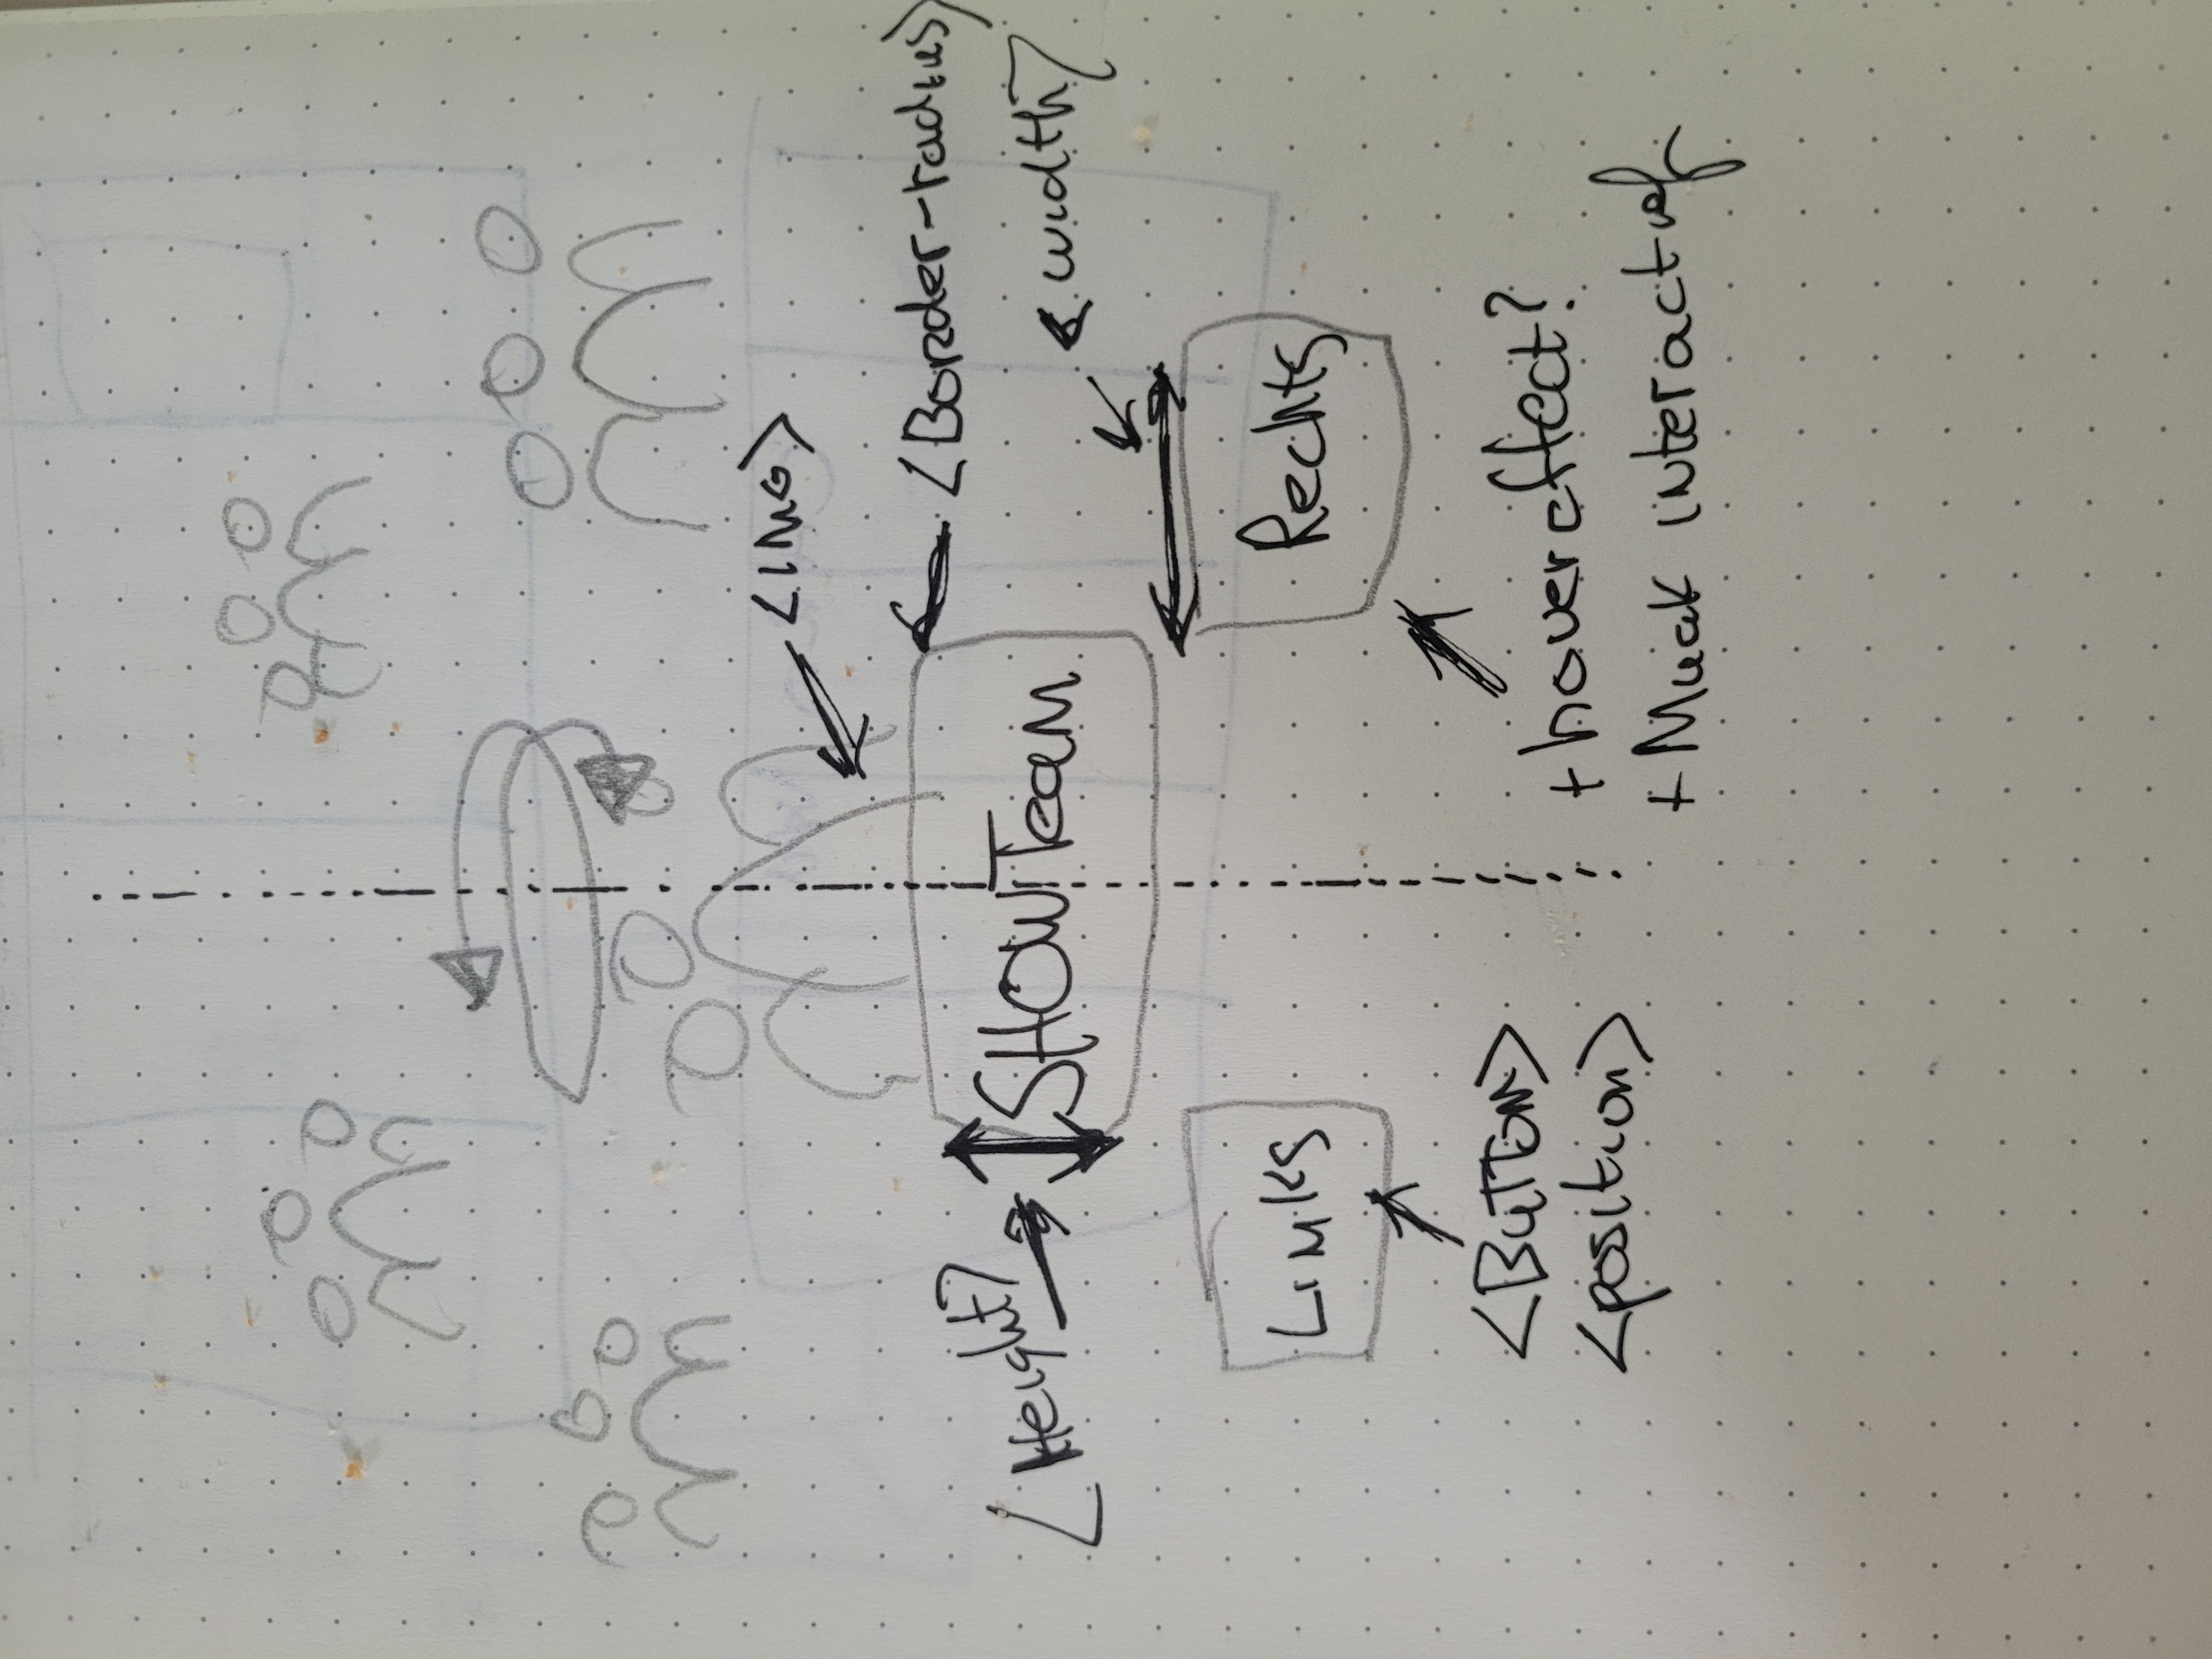 <IMG>
<Border-radius>
<width>
<Height>
SHOWTEAM
Links
Rechts
<BUTTON>
<position>
+ hover effect?
+ Muak interactief